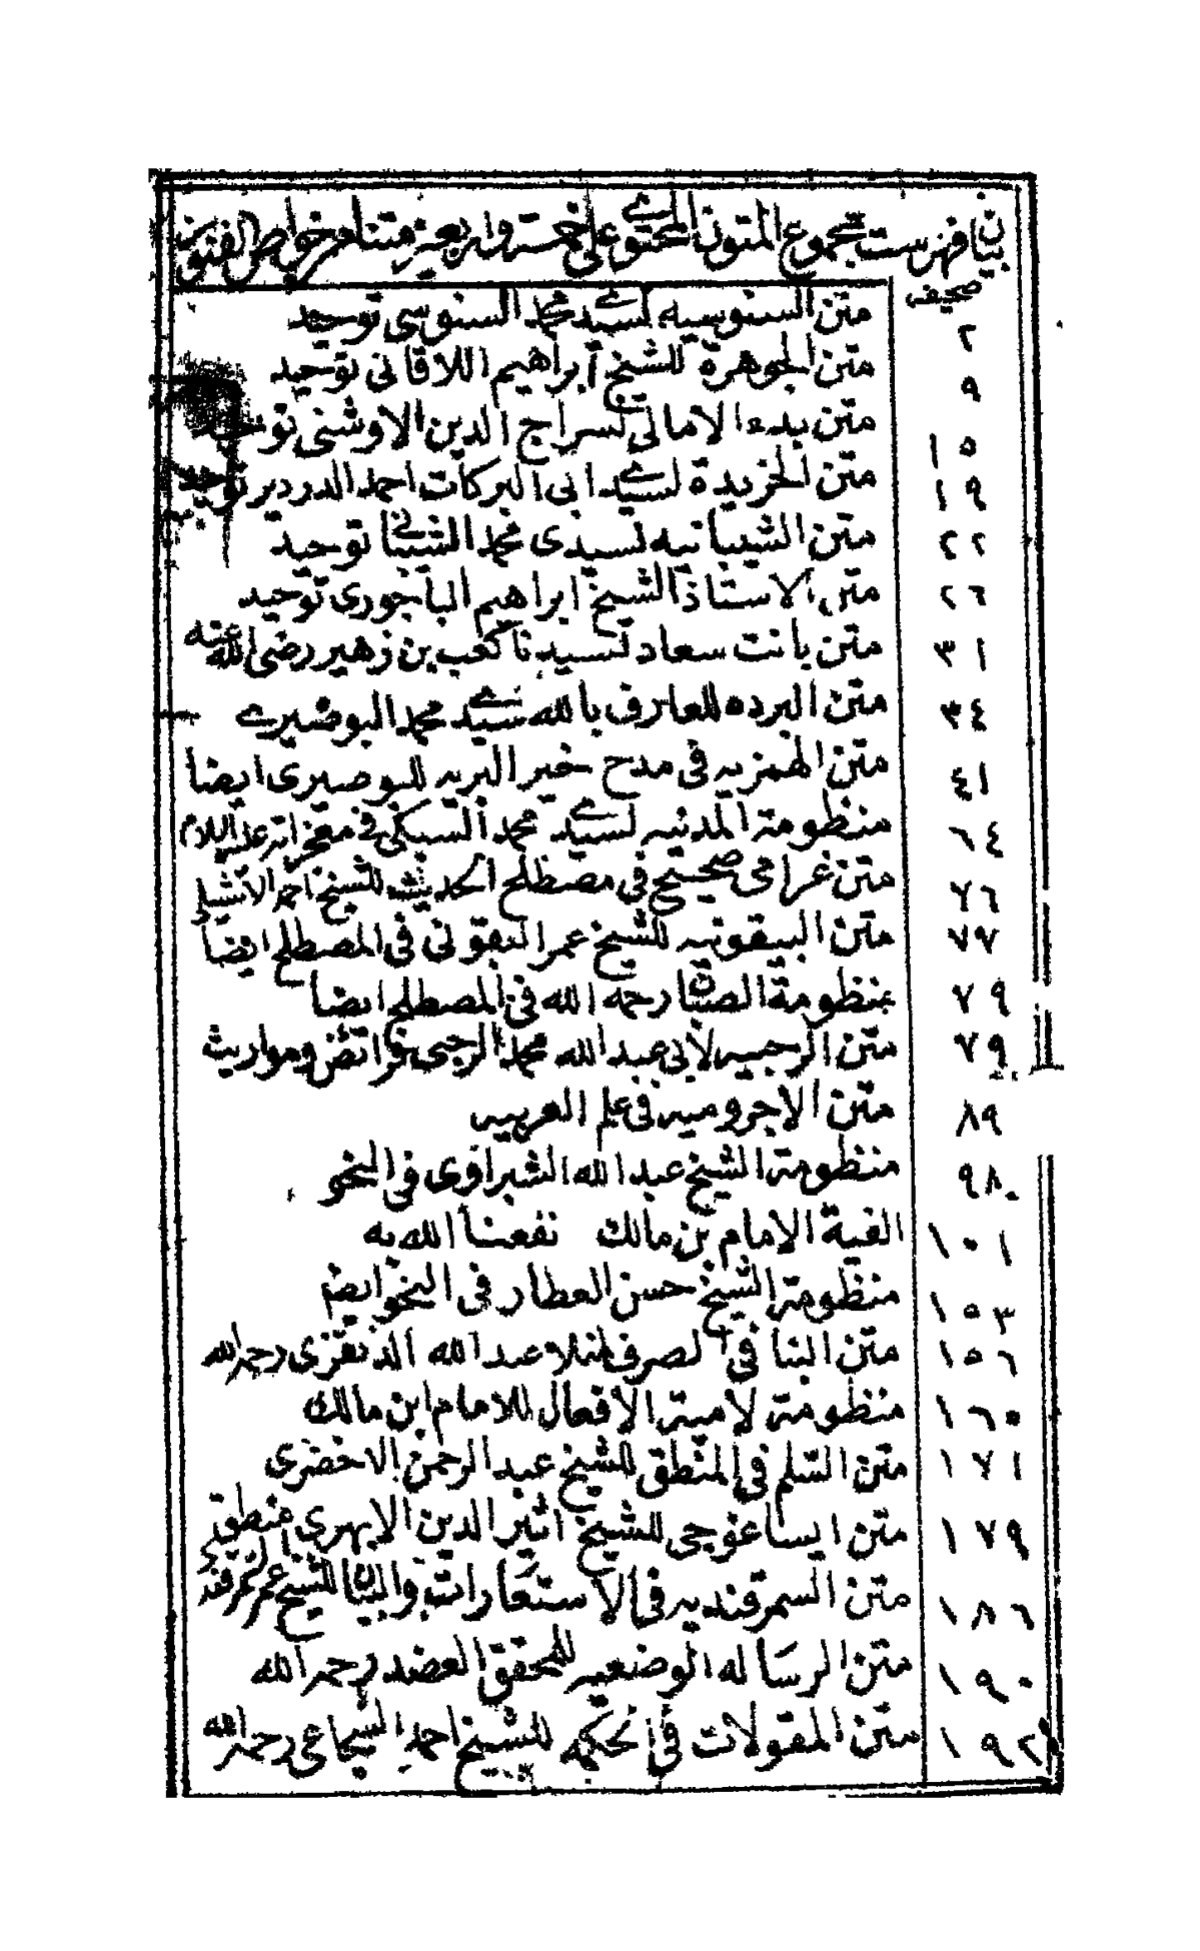 بيان فهرست مجموع المتون المحتوى على خمسة واربعين متنا من خواص الفنون
صحيفه
٢ متن السنوسيه لسيدى محمد السنوسى توحيد
٩ متن الجوهرة للشيخ ابراهيم اللاقانى توحيد
١٥ متن بدء الامالى لسراج الدين الاوشنى توحيد
١٩ متن الخريدة لسيدى ابى البركات احمد الدردير توحيد
٢٢ متن الشيبانيه لسيدى محمد الشيبانى توحيد
٢٦ متن الاستاذ الشيخ ابراهيم الباجورى توحيد
٣١ متن بانت سعاد لسيدنا كعب بن زهير رضى الله عنه
٣٤ متن البرده للعارف بالله سيدى محمد البوصيرى
٤١ متن الهمزيه فى مدح خير البريه للبوصيرى ايضا
٦٤ منظومة المدنيه لسيدى محمد السبكى فى معجزاته عليه السلام
٧٦ متن غرامى صحيح فى مصطلح الحديث للشيخ احمد الاشبيلى
٧٧ متن البيقونيه للشيخ عمر البقونى فى المصطلح ايضا
٧٩ منظومة الصبان رحمه الله فى المصطلح ايضا
٧٩ متن الرحبيه لأبى عبد الله محمد الرحبى فرائض ومواريث
٨٩ متن الاجروميه فى علم العربيه
٩٨ منظومة الشيخ عبد الله الشبراوى فى النحو
١٠١ الفية الامام بن مالك نفعنا الله به
١٥٣ منظومة الشيخ حسن العطار فى النحو ايضا
١٥٦ متن البنا فى الصرف لمنلا عبد الله الدنقزى رحمه الله
١٦٥ منظومة لامية الافعال للامام ابن مالك
١٧١ متن السلم فى المنطق للشيخ عبد الرحمن الاخضرى
١٧٩ متن ايساغوجى للشيخ اثير الدين الابهرى منطق
١٨٦ متن السمرقنديه فى الاستعارات والبيان للشيخ عمر السمرقندى
١٩٠ متن الرساله الوضعيه للمحقق العضد رحمه الله
١٩٢ متن المقولات فى الحكمه للشيخ احمد السجاعى رحمه الله